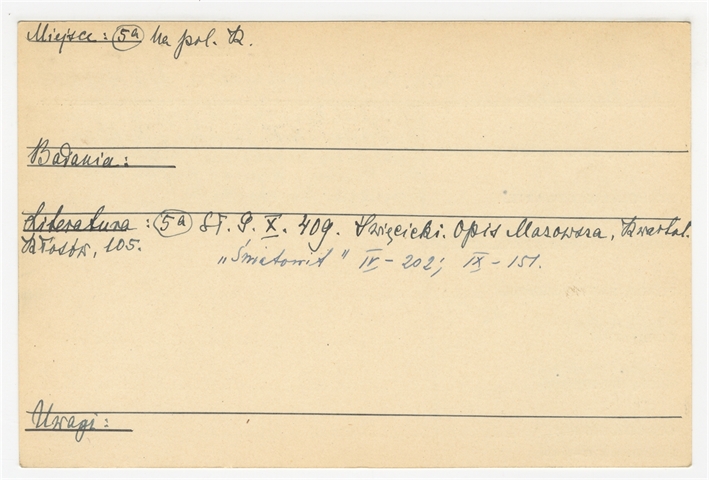 Miejsce: 5a Na pol. K.
Badania:
Literatura: 5a Sł. G. X. 409. Święcicki. Opis Mazowsza, Kwartal.
Kłosów, 105.
„Światowit” IV - 202; IX - 151.
Uwagi: